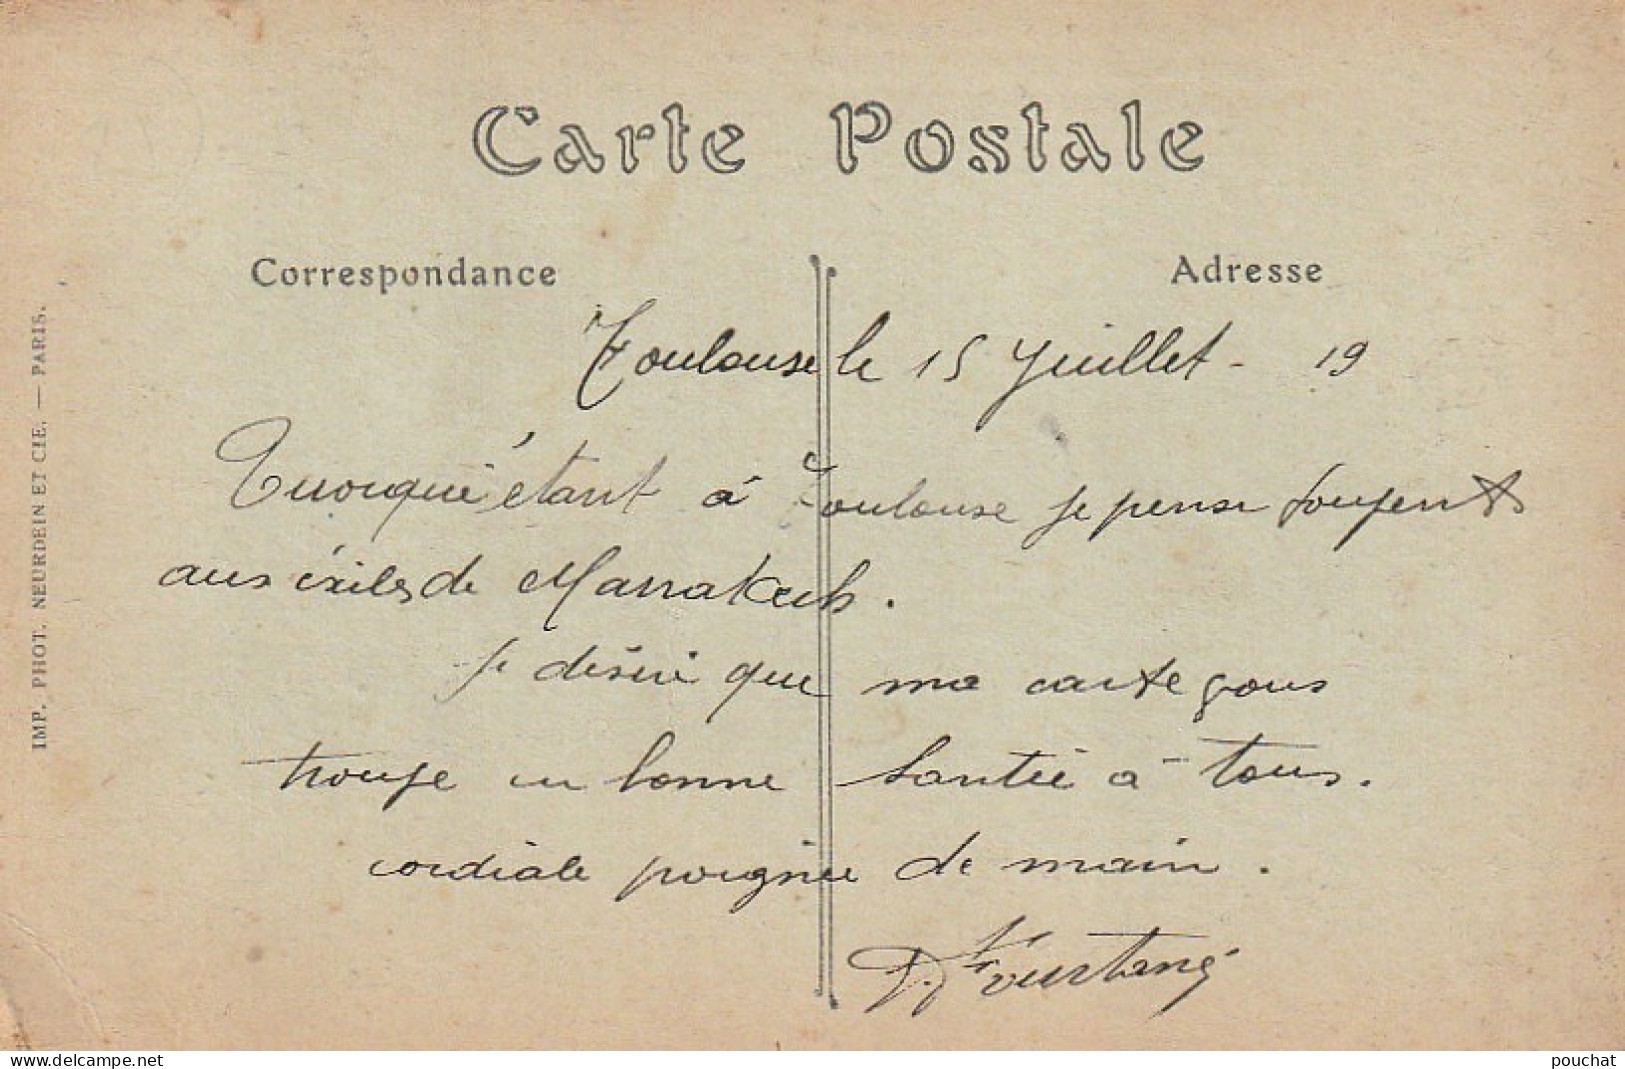 Carte Postale
Correspondance
Adresse
Toulouse le 15 Juillet - 19
Quoique étant à Toulouse je pense souvent
aux éxilés de Marrakech.
Je désire que ma carte vous
trouve en bonne santée à tous.
cordiale poignée de main.
IMP. PHOT. NEURDEIN ET CIE. — PARIS.
https://www.delcampe.net
pouchat